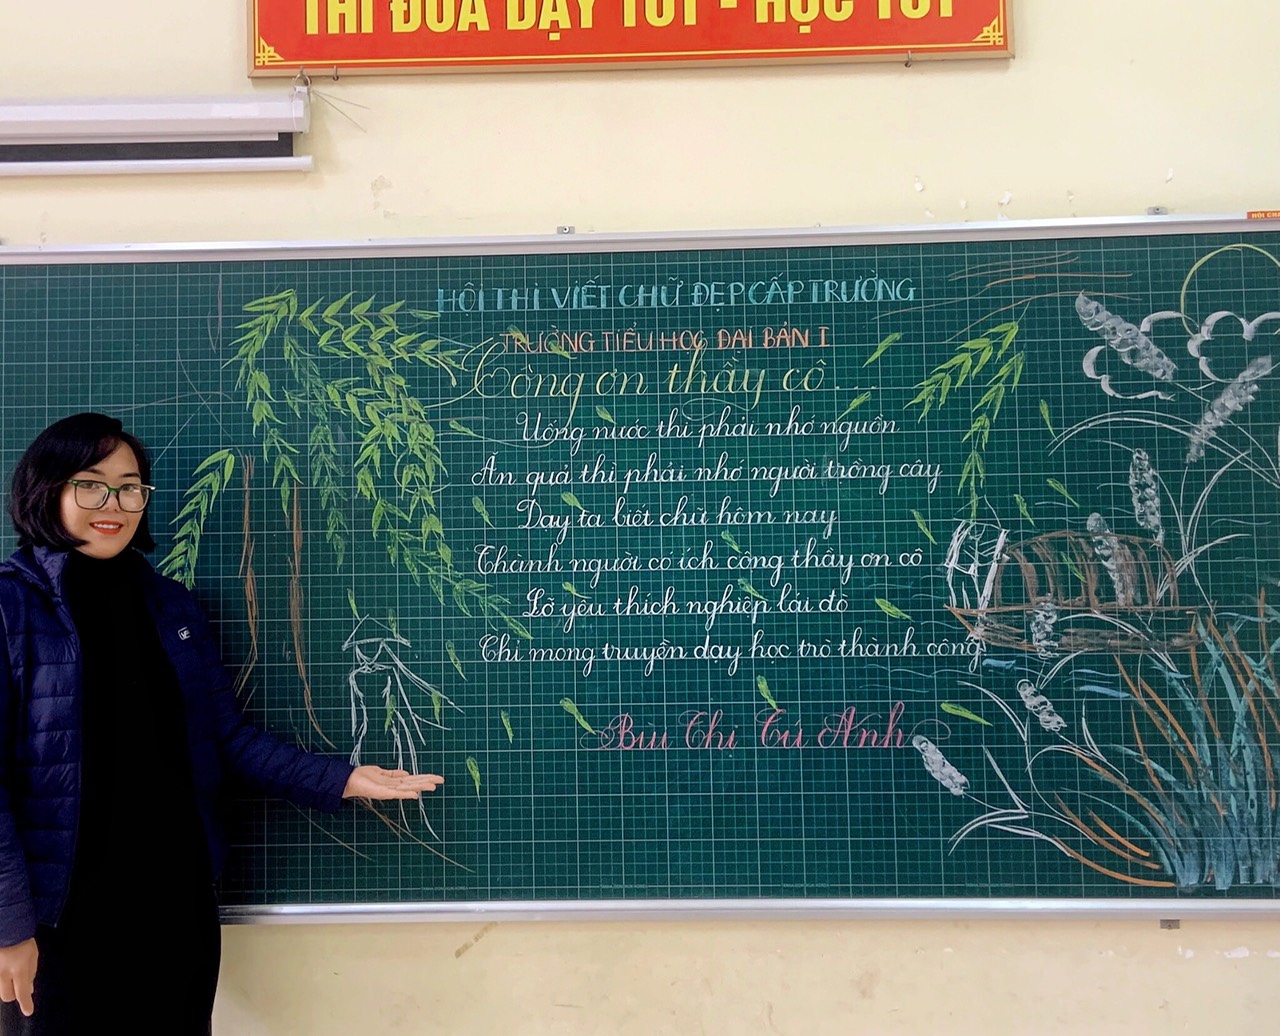 THI ĐUA DẠY TỐT - HỌC TỐT
HỘI THI VIẾT CHỮ ĐẸP CẤP TRƯỜNG
TRƯỜNG TIỂU HỌC ĐẠI BẢN I
Công ơn thầy cô...
Uống nước thì phải nhớ nguồn
Ăn quả thì phải nhớ người trồng cây
Dạy ta biết chữ hôm nay
Thành người có ích công thầy ơn cô
Lỡ yêu thích nghiệp lái đò
Chỉ mong truyền dạy học trò thành công
Bùi Thị Tú Anh